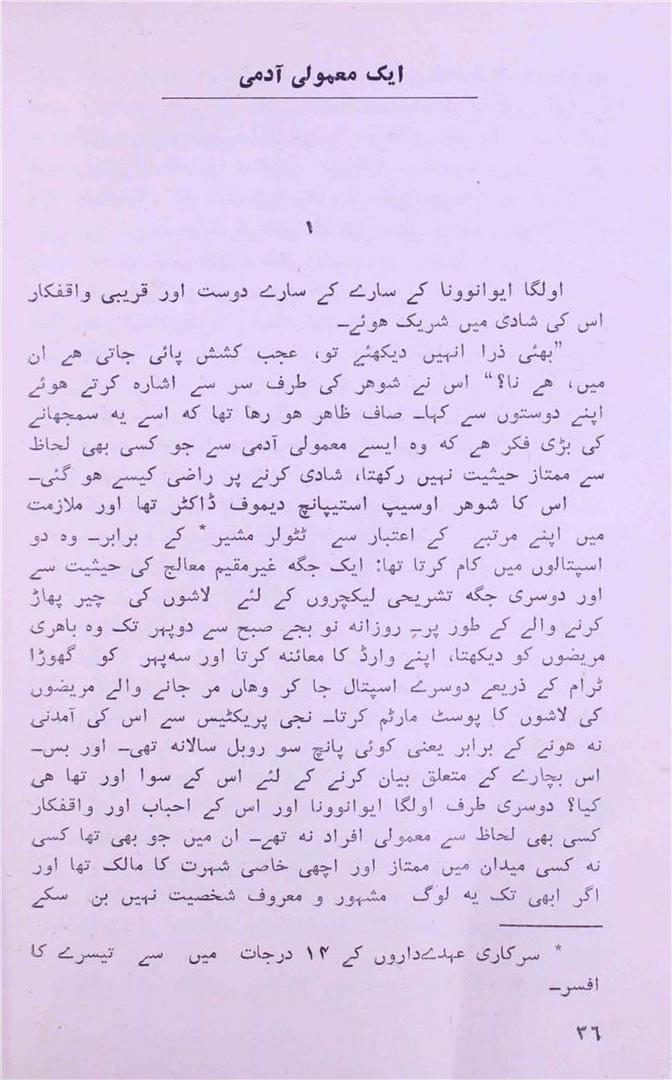 ایک معمولی آدمی
۱
اولگا ایوانوونا کے سارے کے سارے دوست اور قریبی واقفکار
اس کی شادی میں شریک ہوئے۔
”بھئی ذرا انہیں دیکھئے تو، عجب کشش پائی جاتی ہے ان
میں، ہے نا؟“ اس نے شوہر کی طرف سر سے اشارہ کرتے ہوئے
اپنے دوستوں سے کہا۔ صاف ظاہر ہو رہا تھا کہ اسے یہ سمجھانے
کی بڑی فکر ہے کہ وہ ایسے معمولی آدمی سے جو کسی بھی لحاظ
سے ممتاز حیثیت نہیں رکھتا، شادی کرنے پر راضی کیسے ہو گئی۔
اس کا شوہر اوسیپ استیپانچ دیموف ڈاکٹر تھا اور ملازمت
میں اپنے مرتبے کے اعتبار سے ٹٹولر مشیر* کے برابر۔ وہ دو
اسپتالوں میں کام کرتا تھا: ایک جگہ غیرمقیم معالج کی حیثیت سے
اور دوسری جگہ تشریحی لیکچروں کے لئے لاشوں کی چیر پھاڑ
کرنے والے کے طور پر۔ روزانہ نو بجے صبح سے دوپہر تک وہ باہری
مریضوں کو دیکھتا، اپنے وارڈ کا معائنہ کرتا اور سہ‌پہر کو گھوڑا
ٹرام کے ذریعے دوسرے اسپتال جا کر وہاں مر جانے والے مریضوں
کی لاشوں کا پوسٹ مارٹم کرتا۔ نجی پریکٹیس سے اس کی آمدنی
نہ ہونے کے برابر یعنی کوئی پانچ سو روبل سالانہ تھی۔ اور بس۔
اس بچارے کے متعلق بیان کرنے کے لئے اس کے سوا اور تھا ہی
کیا؟ دوسری طرف اولگا ایوانوونا اور اس کے احباب اور واقفکار
کسی بھی لحاظ سے معمولی افراد نہ تھے۔ ان میں جو بھی تھا کسی
نہ کسی میدان میں ممتاز اور اچھی خاصی شہرت کا مالک تھا اور
اگر ابھی تک یہ لوگ مشہور و معروف شخصیت نہیں بن سکے
* سرکاری عہدے‌داروں کے ۱۴ درجات میں سے تیسرے کا
افسر۔
۳۶